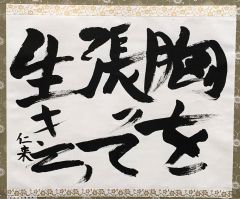 胸を
張って
生きろ
仁来